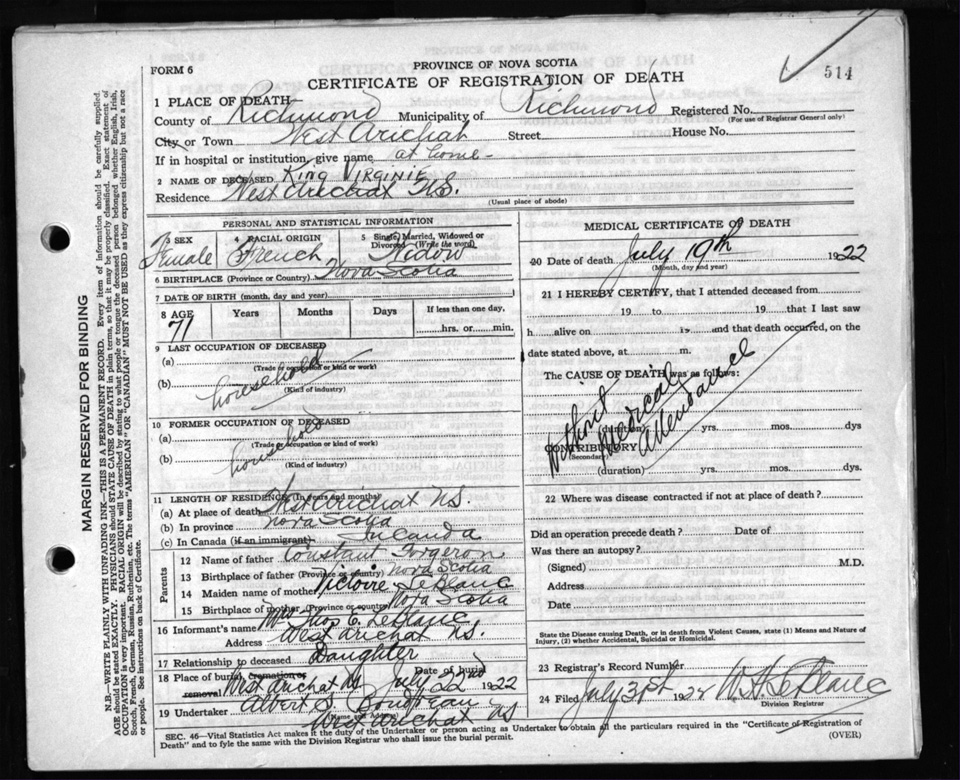 514
FORM 6
PROVINCE OF NOVA SCOTIA
CERTIFICATE OF REGISTRATION OF DEATH
1 PLACE OF DEATH
County of Richmond Municipality of Richmond Registered No.
(For use of Registrar General only)
City or Town West Arichat Street House No.
If in hospital or institution, give name at home-
2 NAME OF DECEASED King Virginie
Residence West Arichat N.S.
(Usual place of abode)
PERSONAL AND STATISTICAL INFORMATION
3 SEX Female
4 RACIAL ORIGIN French
5 Single, Married, Widowed or Divorced (Write the word) Widow
6 BIRTHPLACE (Province or Country) Nova Scotia
7 DATE OF BIRTH (month, day and year)
8 AGE 71 Years Months Days If less than one day, hrs. or min.
9 LAST OCCUPATION OF DECEASED
(a)
(Trade or occupation or kind or work)
(b) household
(Kind of industry)
10 FORMER OCCUPATION OF DECEASED
(a)
(Trade or occupation or kind of work)
(b) household
(Kind of industry)
11 LENGTH OF RESIDENCE (In years and months)
(a) At place of death West Arichat N.S.
(b) In province Nova Scotia
(c) In Canada (if an immigrant)
Parents
12 Name of father Constant Forgeron
13 Birthplace of father (Province or country) Nova Scotia
14 Maiden name of mother Victoire LeBlanc
15 Birthplace of mother (Province or country) Nova Scotia
16 Informant's name Mrs Thos C. LeBlanc
Address West Arichat N.S.
17 Relationship to deceased Daughter
18 Place of burial, cremation or removal West Arichat NS Date of burial July 22nd 1922
19 Undertaker Albert S. Boudreau
(Name and Address)
West Arichat NS
MEDICAL CERTIFICATE OF DEATH
20 Date of death July 19th 1922
(Month, day and year)
21 I HEREBY CERTIFY, that I attended deceased from
19 to 19 that I last saw
h alive on 19 and that death occurred, on the
date stated above, at m.
The CAUSE OF DEATH was as follows:
Without Medical Attendance
(duration) yrs. mos. dys.
CONTRIBUTORY
(Secondary)
(duration) yrs. mos. dys.
22 Where was disease contracted if not at place of death?
Did an operation precede death? Date of
Was there an autopsy?
(Signed) M.D.
Address
Date
State the Disease causing Death, or in death from Violent Causes, state (1) Means and Nature of
Injury, (2) whether Accidental, Suicidal or Homicidal.
23 Registrar's Record Number
24 Filed July 31st LeBlanc
Division Registrar
SEC. 46—Vital Statistics Act makes it the duty of the Undertaker or person acting as Undertaker to obtain all the particulars required in the "Certificate of Registration of
Death" and to fyle the same with the Division Registrar who shall issue the burial permit.
(OVER)
MARGIN RESERVED FOR BINDING
N.B.—WRITE PLAINLY WITH UNFADING INK—THIS IS A PERMANENT RECORD. Every item of information should be carefully supplied.
AGE should be stated EXACTLY. PHYSICIANS should STATE CAUSE OF DEATH in plain terms, so that it may be properly classified. Exact statement of
OCCUPATION is very important. RACIAL ORIGIN will be described by stating to what people or tongue the deceased person belonged whether English, Irish,
Scotch, French, German, Russian, Ruthenian, etc. The terms "AMERICAN" or "CANADIAN" MUST NOT BE USED as they express citizenship but not a race
or people. See instructions on back of Certificate.